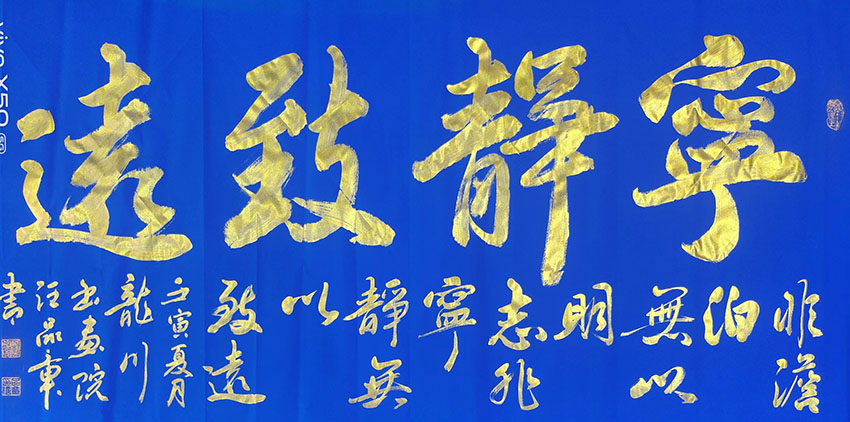 寧靜致遠
非澹
泊
無以
明
志非
寧
靜無
以
致遠
壬寅夏月
龍川
書畫院
汪品東
書
vivo X50 5G